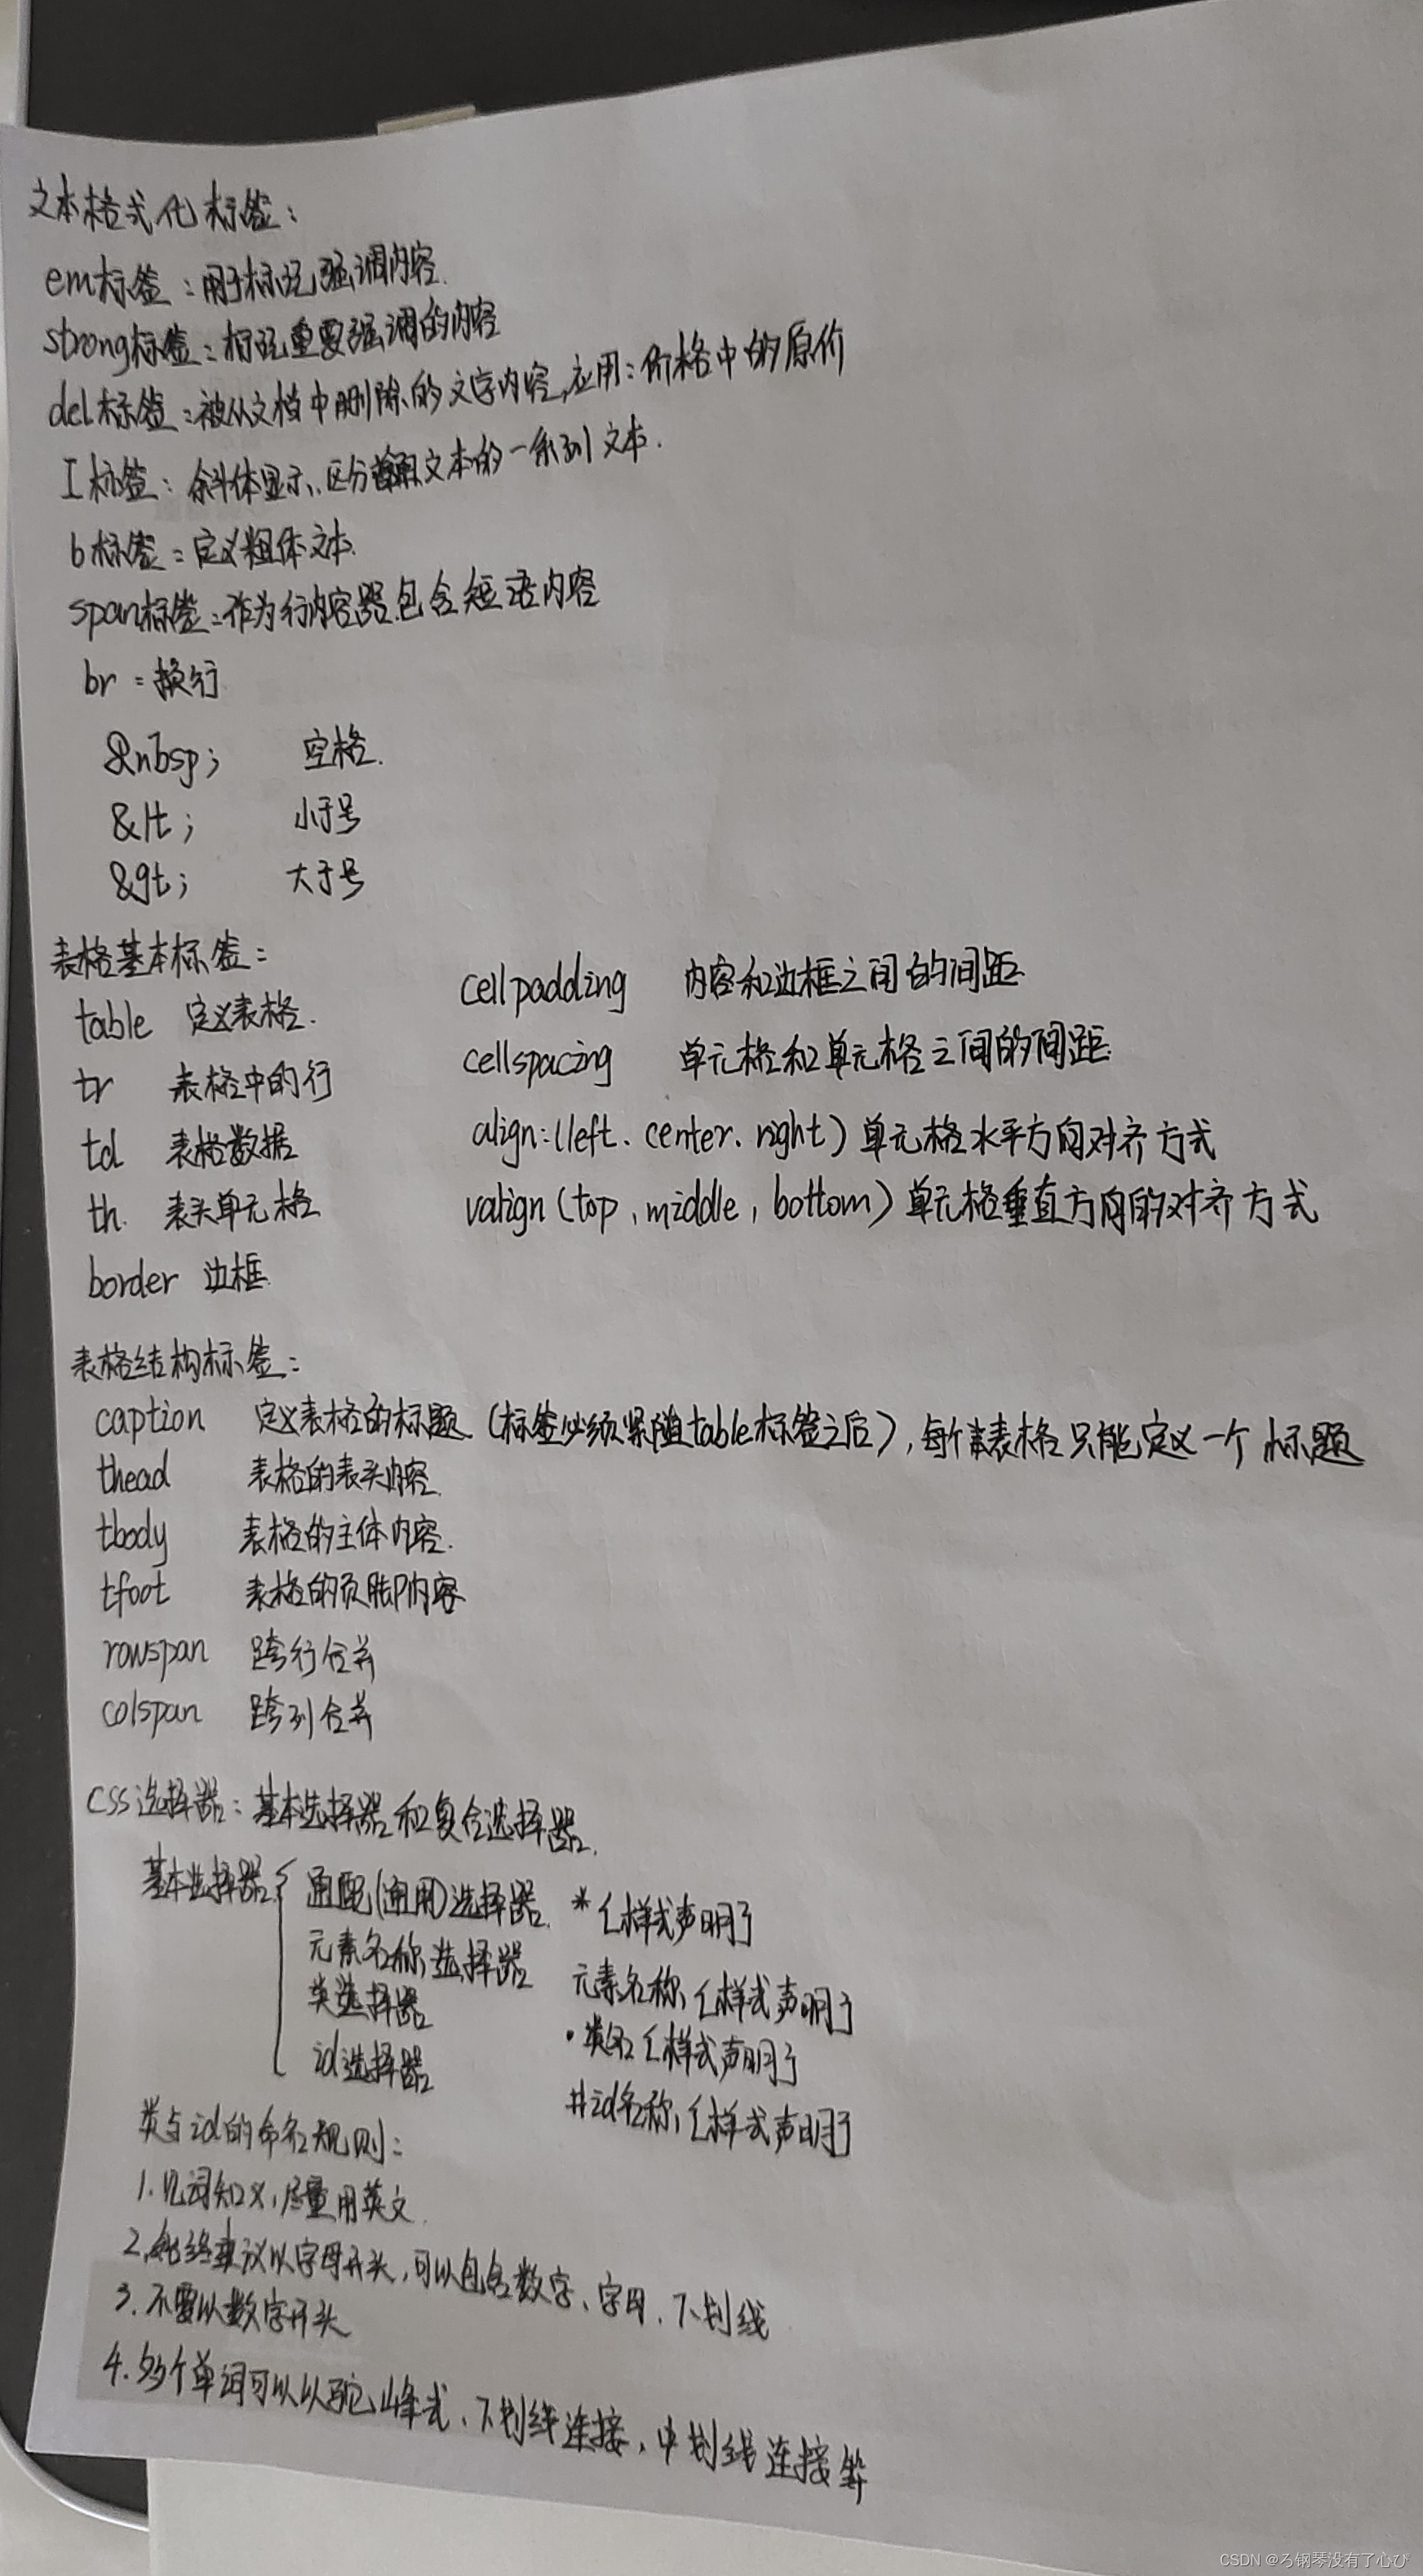 文本格式化标签：
em标签：用于标记强调内容.
strong标签：标记重要强调的内容
del标签：被从文档中删除的文字内容,应用：价格中的原价
I标签：斜体显示、区分普通文本的一系列文本.
b标签：定义粗体文本.
span标签：作为行内容器.包含短语内容
br：换行
&nbsp; 空格.
&lt; 小于号
&gt; 大于号
表格基本标签：
table 定义表格.
tr 表格中的行
td 表格数据
th. 表头单元格
border 边框.
cellpadding 内容和边框之间的间距.
cellspacing 单元格和单元格之间的间距.
align:(left、center、right)单元格水平方向对齐方式
valign(top,middle,bottom)单元格垂直方向的对齐方式
表格结构标签：
caption 定义表格的标题(标签必须紧随table标签之后),每个表格只能定义一个标题
thead 表格的表头内容.
tbody 表格的主体内容.
tfoot 表格的页脚内容
rowspan 跨行合并
colspan 跨列合并
CSS选择器：基本选择器和复合选择器.
基本选择器{ 通配(通用)选择器. *{样式声明}
元素名称选择器 元素名称{样式声明}
类选择器 .类名{样式声明}
id选择器 #id名称{样式声明}
类与id的命名规则：
1.见词知义,尽量用英文.
2.始终建议以字母开头,可以包含数字、字母、下划线
3.不要以数字开头
4.多个单词可以以驼峰式、下划线连接、中划线连接等
CSDN @ろ钢琴没有了心ひ